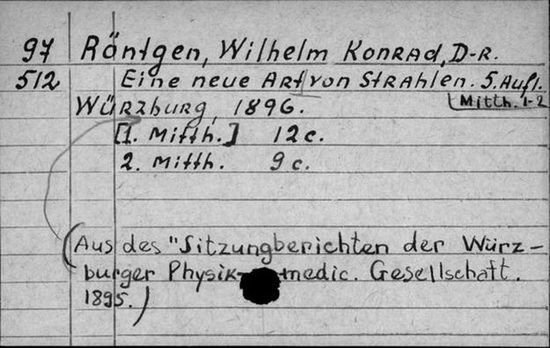 97 Röntgen, Wilhelm Konrad, D-r.
512 Eine neue Art von Strahlen. 5. Aufl.
Mitth. 1-2
Würzburg, 1896.
[1. Mitth.] 12 c.
2. Mitth. 9 c.
(Aus des "Sitzungberichten der Würz-
burger Physik-medic. Gesellschaft.
1895.)